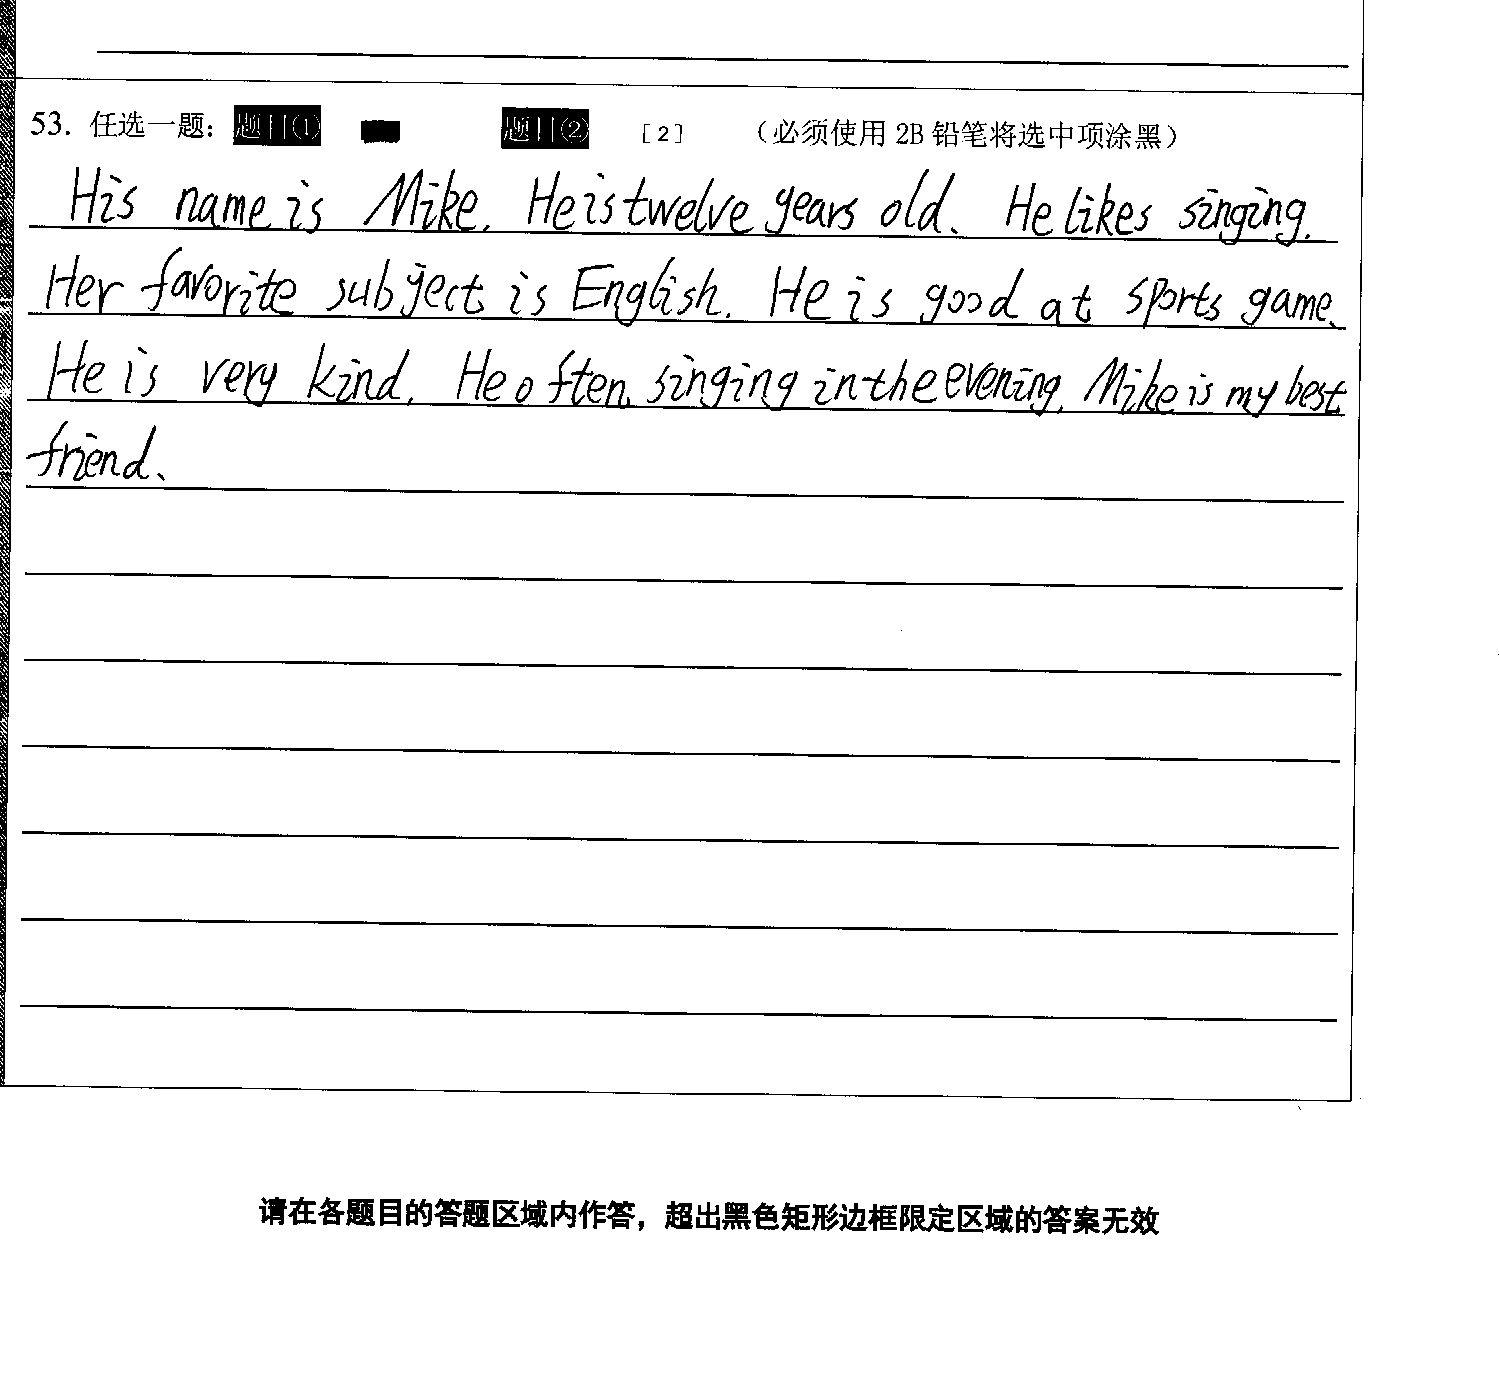 53. 任选一题： 题目① 题目② [2] （必须使用 2B 铅笔将选中项涂黑）
His name is Mike. He is twelve years old. He likes singing.
Her favorite subject is English. He is good at sports game.
He is very kind. He often singing in the evening. Mike is my best
friend.
请在各题目的答题区域内作答，超出黑色矩形边框限定区域的答案无效